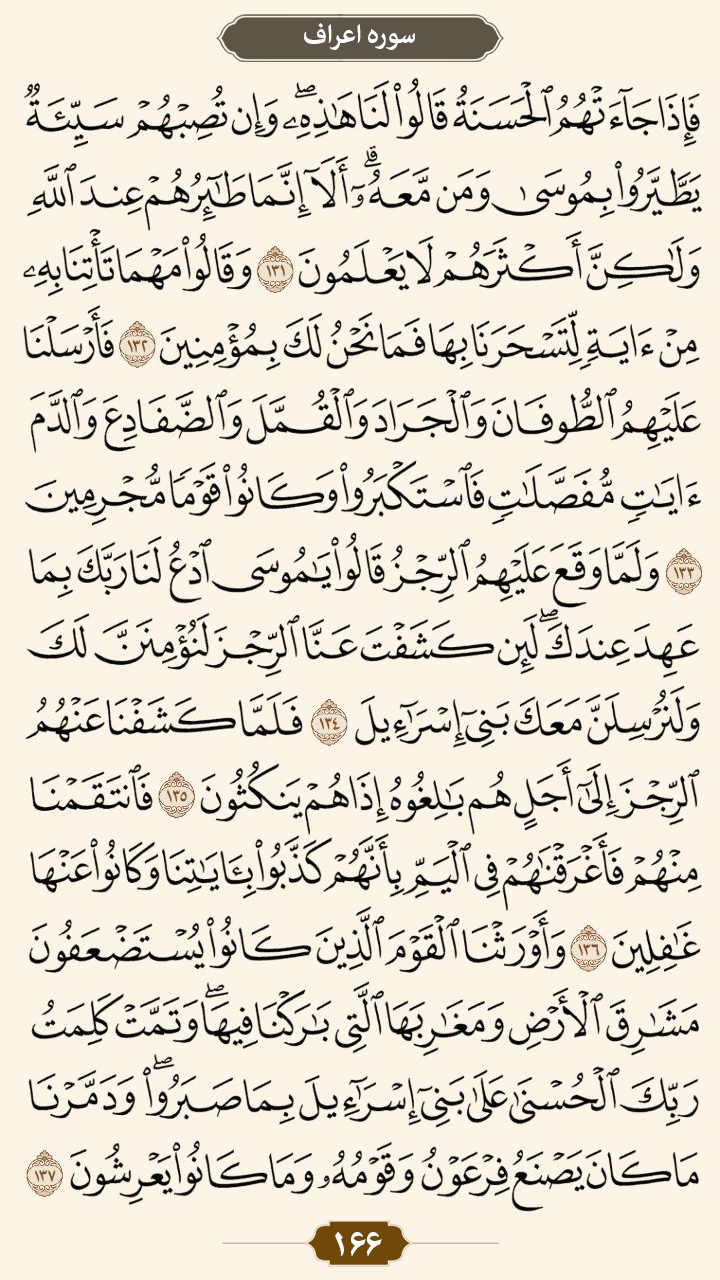 سوره اعراف
فَإِذَا جَآءَتْهُمُ ٱلْحَسَنَةُ قَالُوا۟ لَنَا هَـٰذِهِۦ ۖ وَإِن تُصِبْهُمْ سَيِّئَةٌ
يَطَّيَّرُوا۟ بِمُوسَىٰ وَمَن مَّعَهُۥٓ ۗ أَلَآ إِنَّمَا طَـٰٓئِرُهُمْ عِندَ ٱللَّهِ
وَلَـٰكِنَّ أَكْثَرَهُمْ لَا يَعْلَمُونَ ١٣١ وَقَالُوا۟ مَهْمَا تَأْتِنَا بِهِۦ
مِنْ ءَايَةٍ لِّتَسْحَرَنَا بِهَا فَمَا نَحْنُ لَكَ بِمُؤْمِنِينَ ١٣٢ فَأَرْسَلْنَا
عَلَيْهِمُ ٱلطُّوفَانَ وَٱلْجَرَادَ وَٱلْقُمَّلَ وَٱلضَّفَادِعَ وَٱلدَّمَ
ءَايَـٰتٍ مُّفَصَّلَـٰتٍ فَٱسْتَكْبَرُوا۟ وَكَانُوا۟ قَوْمًا مُّجْرِمِينَ
١٣٣ وَلَمَّا وَقَعَ عَلَيْهِمُ ٱلرِّجْزُ قَالُوا۟ يَـٰمُوسَى ٱدْعُ لَنَا رَبَّكَ بِمَا
عَهِدَ عِندَكَ ۖ لَئِن كَشَفْتَ عَنَّا ٱلرِّجْزَ لَنُؤْمِنَنَّ لَكَ
وَلَنُرْسِلَنَّ مَعَكَ بَنِىٓ إِسْرَـٰٓءِيلَ ١٣٤ فَلَمَّا كَشَفْنَا عَنْهُمُ
ٱلرِّجْزَ إِلَىٰٓ أَجَلٍ هُم بَـٰلِغُوهُ إِذَا هُمْ يَنكُثُونَ ١٣٥ فَٱنتَقَمْنَا
مِنْهُمْ فَأَغْرَقْنَـٰهُمْ فِى ٱلْيَمِّ بِأَنَّهُمْ كَذَّبُوا۟ بِـَٔايَـٰتِنَا وَكَانُوا۟ عَنْهَا
غَـٰفِلِينَ ١٣٦ وَأَوْرَثْنَا ٱلْقَوْمَ ٱلَّذِينَ كَانُوا۟ يُسْتَضْعَفُونَ
مَشَـٰرِقَ ٱلْأَرْضِ وَمَغَـٰرِبَهَا ٱلَّتِى بَـٰرَكْنَا فِيهَا ۖ وَتَمَّتْ كَلِمَتُ
رَبِّكَ ٱلْحُسْنَىٰ عَلَىٰ بَنِىٓ إِسْرَـٰٓءِيلَ بِمَا صَبَرُوا۟ ۖ وَدَمَّرْنَا
مَا كَانَ يَصْنَعُ فِرْعَوْنُ وَقَوْمُهُۥ وَمَا كَانُوا۟ يَعْرِشُونَ ١٣٧
۱۶۶